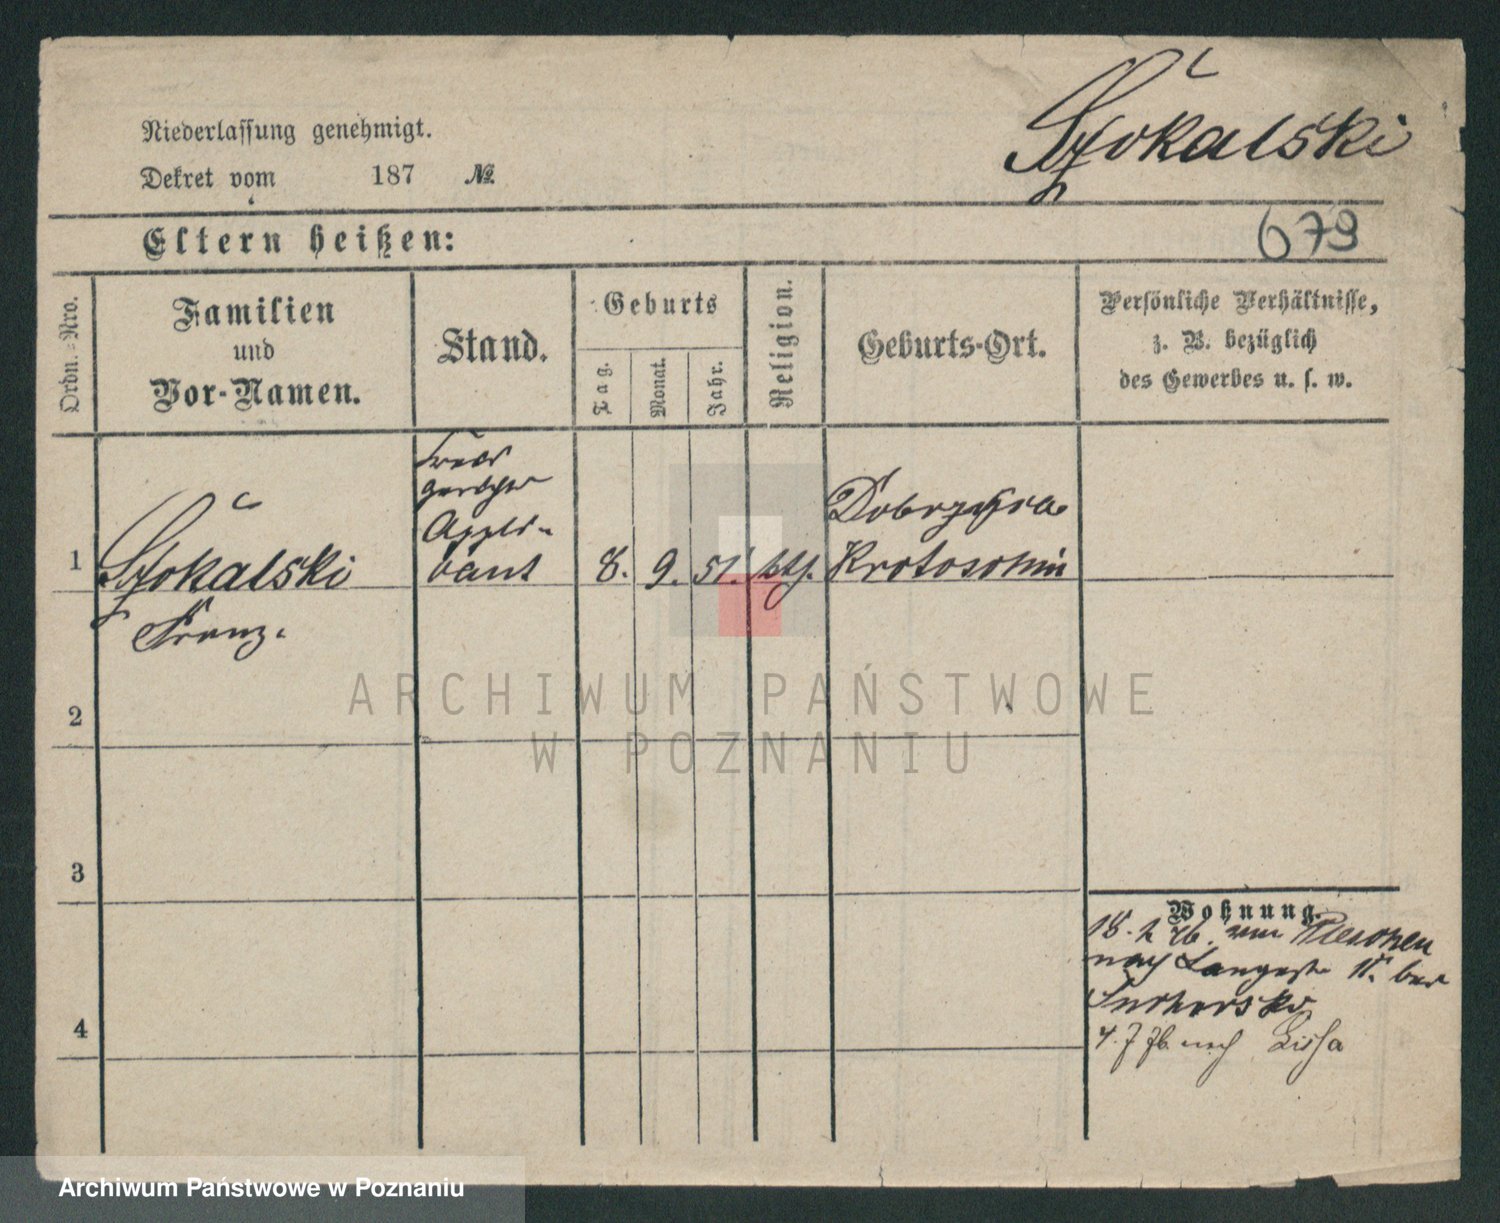 Niederlassung genehmigt.
Dekret vom 187 №
Szokalski
679
Eltern heißen:
Ordn.-Nro.
Familien
und
Vor-Namen.
Stand.
Geburts
Tag.
Monat.
Jahr.
Religion.
Geburts-Ort.
Persönliche Verhältnisse,
z. B. bezüglich
des Gewerbes u. s. w.
Kreis
gerichts
Appli-
cant
1
Szokalski
Franz.
8. 9. 51. kth.
Dobrzyca
Krotoschin
2
3
4
Wohnung.
18. 2 76. von Pleschen
nach Langestr 11. bei
4. 7 76. nach Lissa
ARCHIWUM PAŃSTWOWE
W POZNANIU
Archiwum Państwowe w Poznaniu